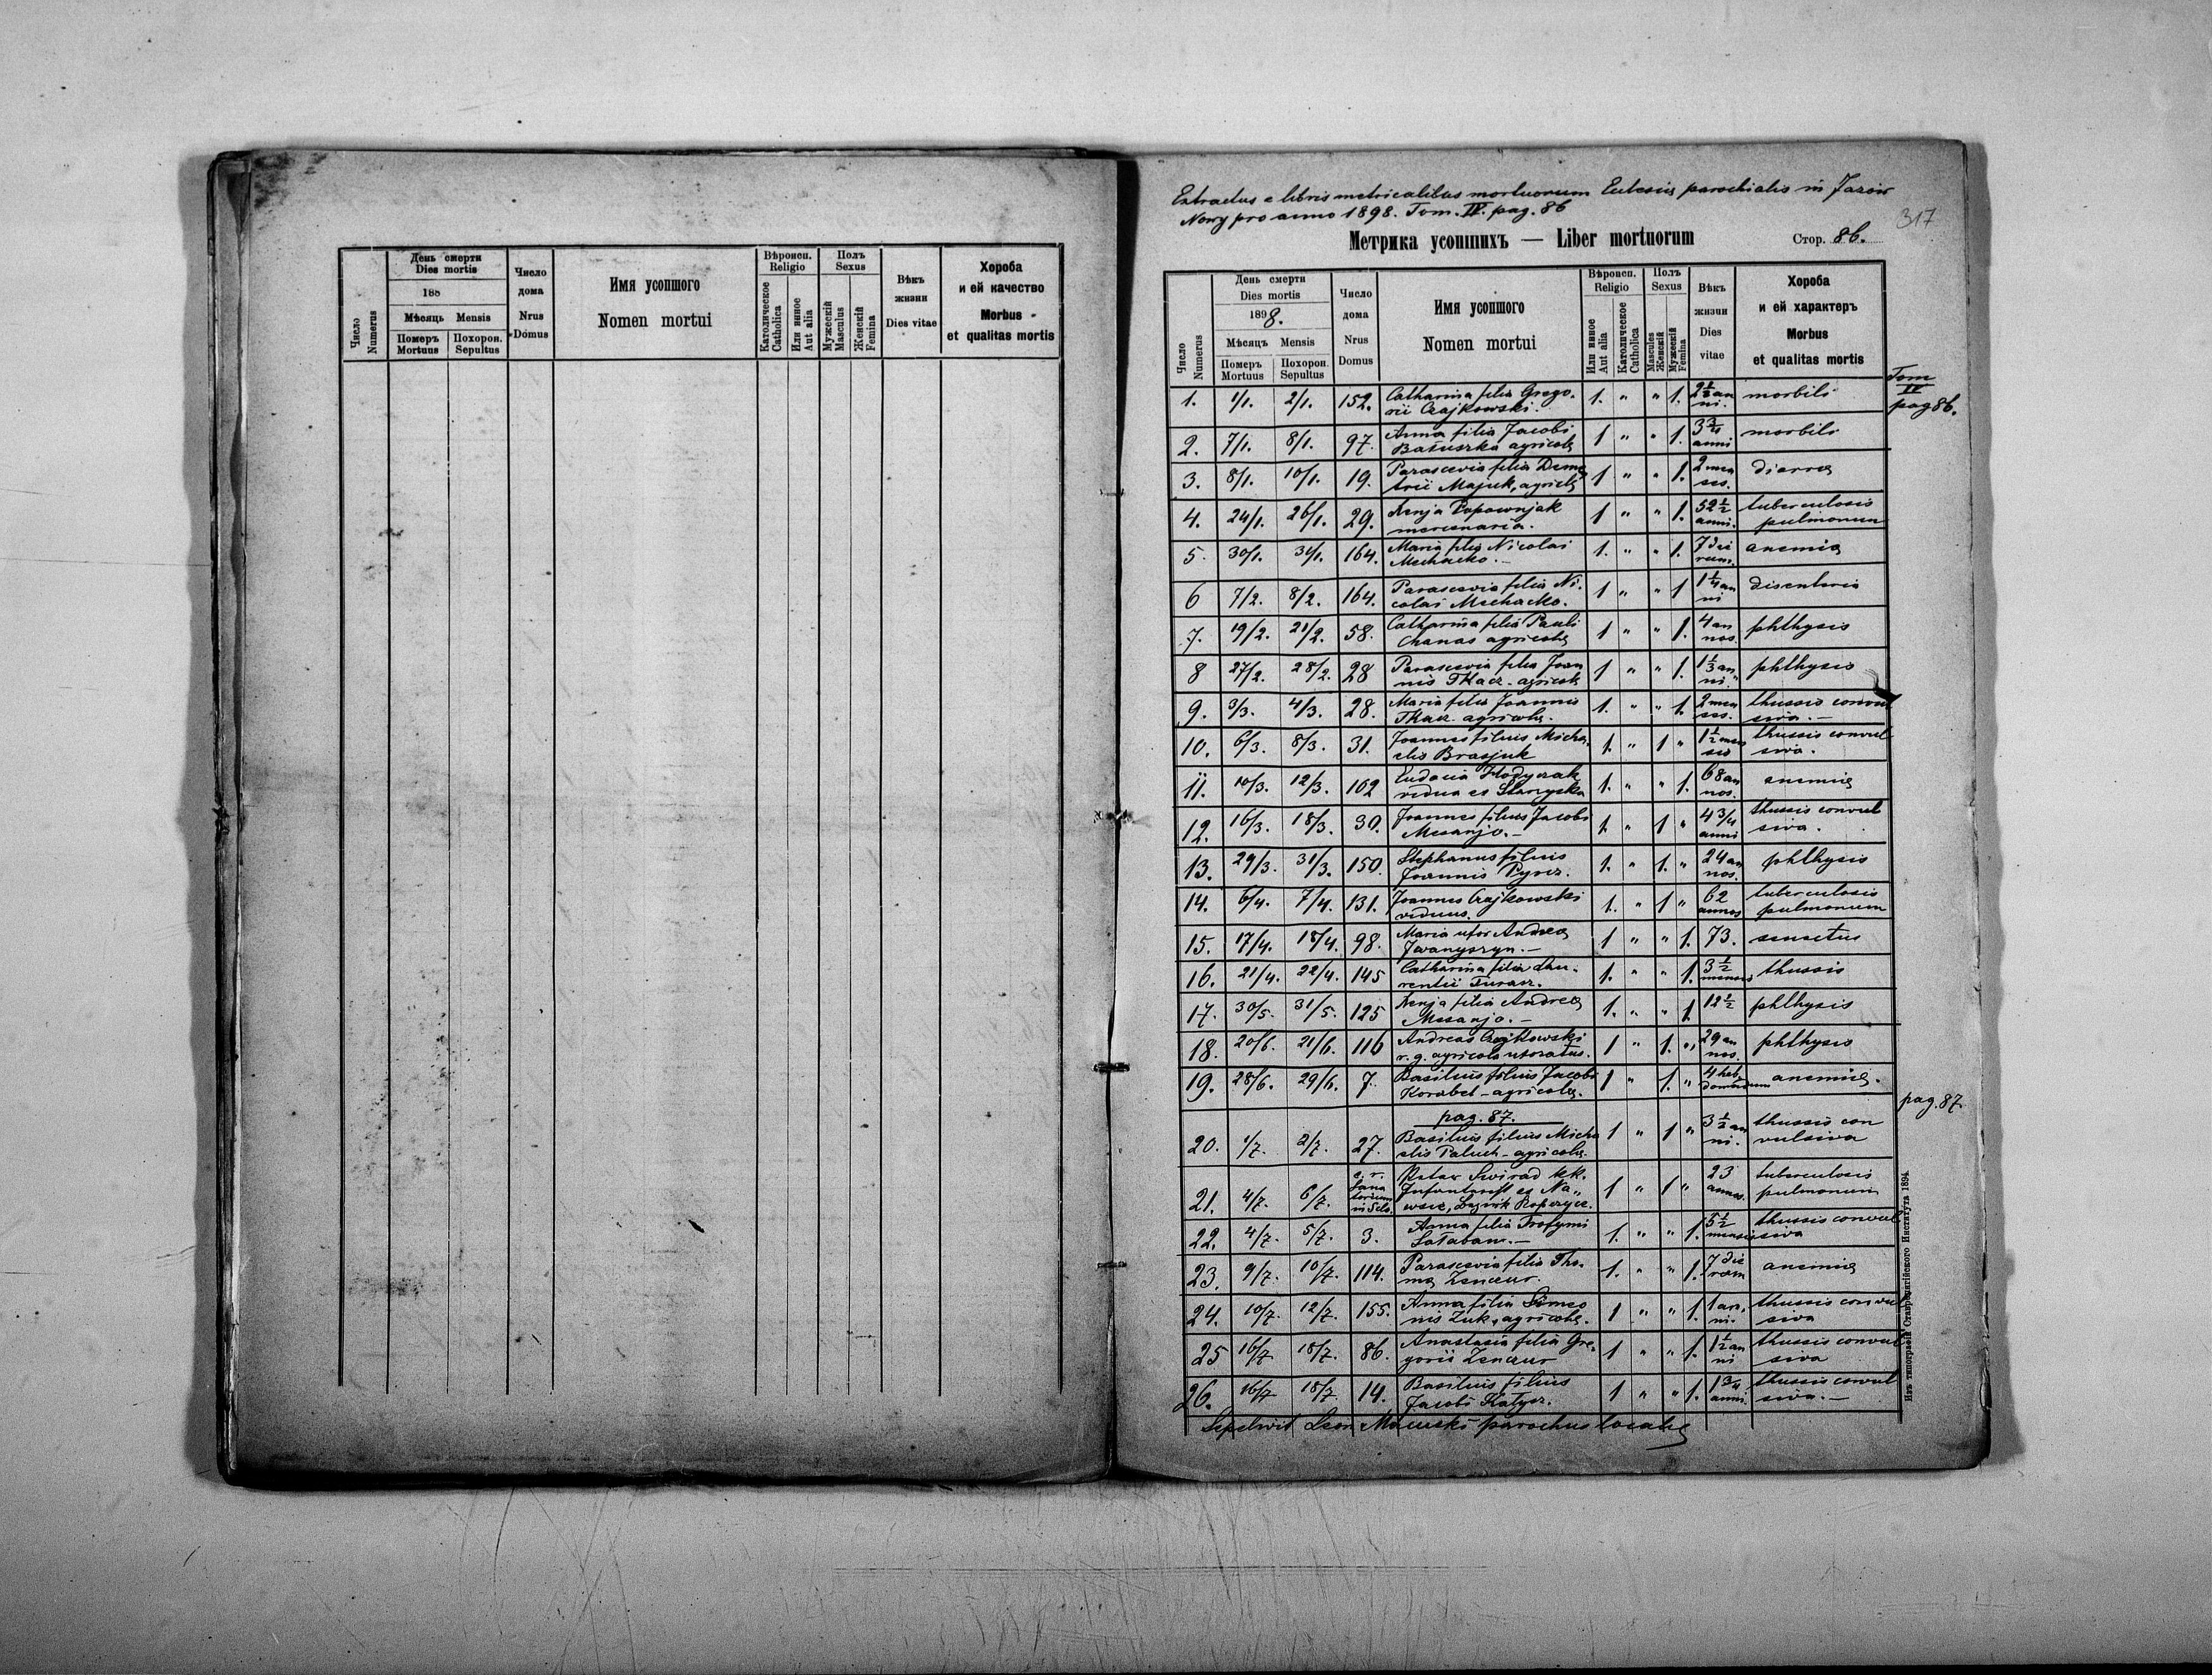 День смерти
Dies mortis
188
Мѣсяць Mensis
Число
Numerus
Померъ
Mortuus
Похорон.
Sepultus
Число
дома
Nrus
Domus
Имя усопшого
Nomen mortui
Вѣроисп.
Religio
Католическое
Catholica
Или инное
Aut alia
Полъ
Sexus
Мужескій
Masculus
Женскій
Femina
Вѣкъ
жизни
Dies vitae
Хороба
и ей качество
Morbus
et qualitas mortis
Extractus e libris metricalibus mortuorum Eclesiæ parochialis in Jazów
Nowy pro anno 1898. Tom. IV. pag. 86
317
Метрика усопшихъ — Liber mortuorum
Стор. 86.
Число
Numerus
День смерти
Dies mortis
1898.
Мѣсяцъ Mensis
Померъ
Mortuus
Похорон.
Sepultus
Число
дома
Nrus
Domus
Имя усопшого
Nomen mortui
Вѣроисп.
Religio
Или инное
Aut alia
Католическое
Catholica
Полъ
Sexus
Mascules
Женскій
Мужескій
Femina
Вѣкъ
жизни
Dies
vitae
Хороба
и ей характеръ
Morbus
et qualitas mortis
Tom
IV
pag 86.
1. 1/1. 2/1. 152. Catharina filia Grego-
rii Czajkowski. 1. " " 1. 2 1/2 an
ni. morbili
2. 7/1. 8/1. 97. Anna filia Jacobi
Batuszka agricolæ 1 " " 1. 3 3/4
anni morbili
3. 8/1. 10/1. 19. Parascevia filia Deme
trii Majuk, agricolæ 1 " " 1. 2 men
ses. diarrea
4. 24/1. 26/1. 29. Xenja Popownjak
mercenaria. 1 " " 1. 52 1/2
anni. tuberculosis
pulmonum
5. 30/1. 31/1. 164. Maria filia Nicolai
Mechacko. 1. " " 1. 7 die
rum. anemia
6 7/2. 8/2. 164. Parascevia filia Ni-
colai Mechacko. 1 " " 1 1 1/4 an
ni disenteria
7. 19/2. 21/2. 58. Catharina filia Pauli
Chanas agricolæ 1 " " 1. 4 an
nos. phthysis
8 27/2. 28/2. 28 Parascevia filia Joan
nis Tkacz - agricolæ 1 " " 1. 1 1/3 an
ni. phthysis
9. 3/3. 4/3. 28. Maria filia Joannis
Tkacz. agricolæ. 1. " " 1. 2 men
ses. thussis convul
siva. —
10. 6/3. 8/3. 31. Joannes filius Micha-
elis Brasjuk 1. " 1 " 1 1/2 men
sis thussis convul
siva.
11. 10/3. 12/3. 102 Eudocia Hodyczak
vidua es Starzyska 1. " " 1. 68 an
nos. anemia
12. 16/3. 18/3. 30. Joannes filius Jacobi
Mesanjo. — 1. " 1 " 4 3/4
anni thussis convul
siva.
13. 29/3. 31/3. 150. Stephanus filius
Joannis Pyrcz. 1. " 1. " 24 an
nos. phthysis
14. 6/4. 7/4. 131. Joannes Czajkowski
viduus. 1. " 1 " 62
annos tuberculosis
pulmonum
15. 17/4. 18/4. 98. Maria uxor Andreæ
Jwanyszyn. — 1 " " 1. 73. senectus
16. 21/4. 22/4. 145 Catharina filia Lau-
rentii Turasz. 1. " " 1. 3 1/2
menses thussis
17. 30/5. 31/5. 125 Xenja filia Andreæ
Mesanjo. — 1. " " 1. 12 1/2 phthysis
18. 20/6. 21/6. 116 Andreas Czajkowski
r. g. agricola uxoratus. 1 " 1. " 29 an
nos. phthysis
19. 28/6. 29/6. 7. Basilius filius Jacobi
Korabel - agricolæ. 1 " 1. " 4 heb
domadum anemia.
pag. 87.
pag. 87.
20. 1/7. 2/7. 27. Basilius filius Micha
elis Paluch - agricolæ. 1 " 1 " 3 1/2 an
ni. thussis con
vulsiva
21. 4/7. 6/7. c. r.
Sana
torium
in Sclo. Petar Swirad kk.
1 " 1 " 23
annos. tuberculosis
pulmonum
22. 4/7. 5/7. 3. Anna filia Trofymi
Sałaban. — 1. " " 1. 5 1/2
mensis thussis convul
siva
23. 9/7. 10/7. 114. Parascevia filia Tho-
mæ Zenczur. 1. " " 1. 7 die
rum anemia
24. 10/7. 12/7. 155. Anna filia Simeo
nis Zuk, agricolæ. 1 " " 1. 1 an.
ni. thussis convul
siva
25 16/7 18/7. 86. Anastasia filia Gre-
gorii Zenczur 1 " " 1. 1 1/2 an
ni thussis convul
siva
26. 16/7 18/7. 14. Basilius filius
Jacobi Katycz. 1 " " 1. 1 3/4
anni. thussis convul
siva. —
Sepelivit Leon Macurski parochus localis
Изъ типографіи Ставропигійского Института 1894.